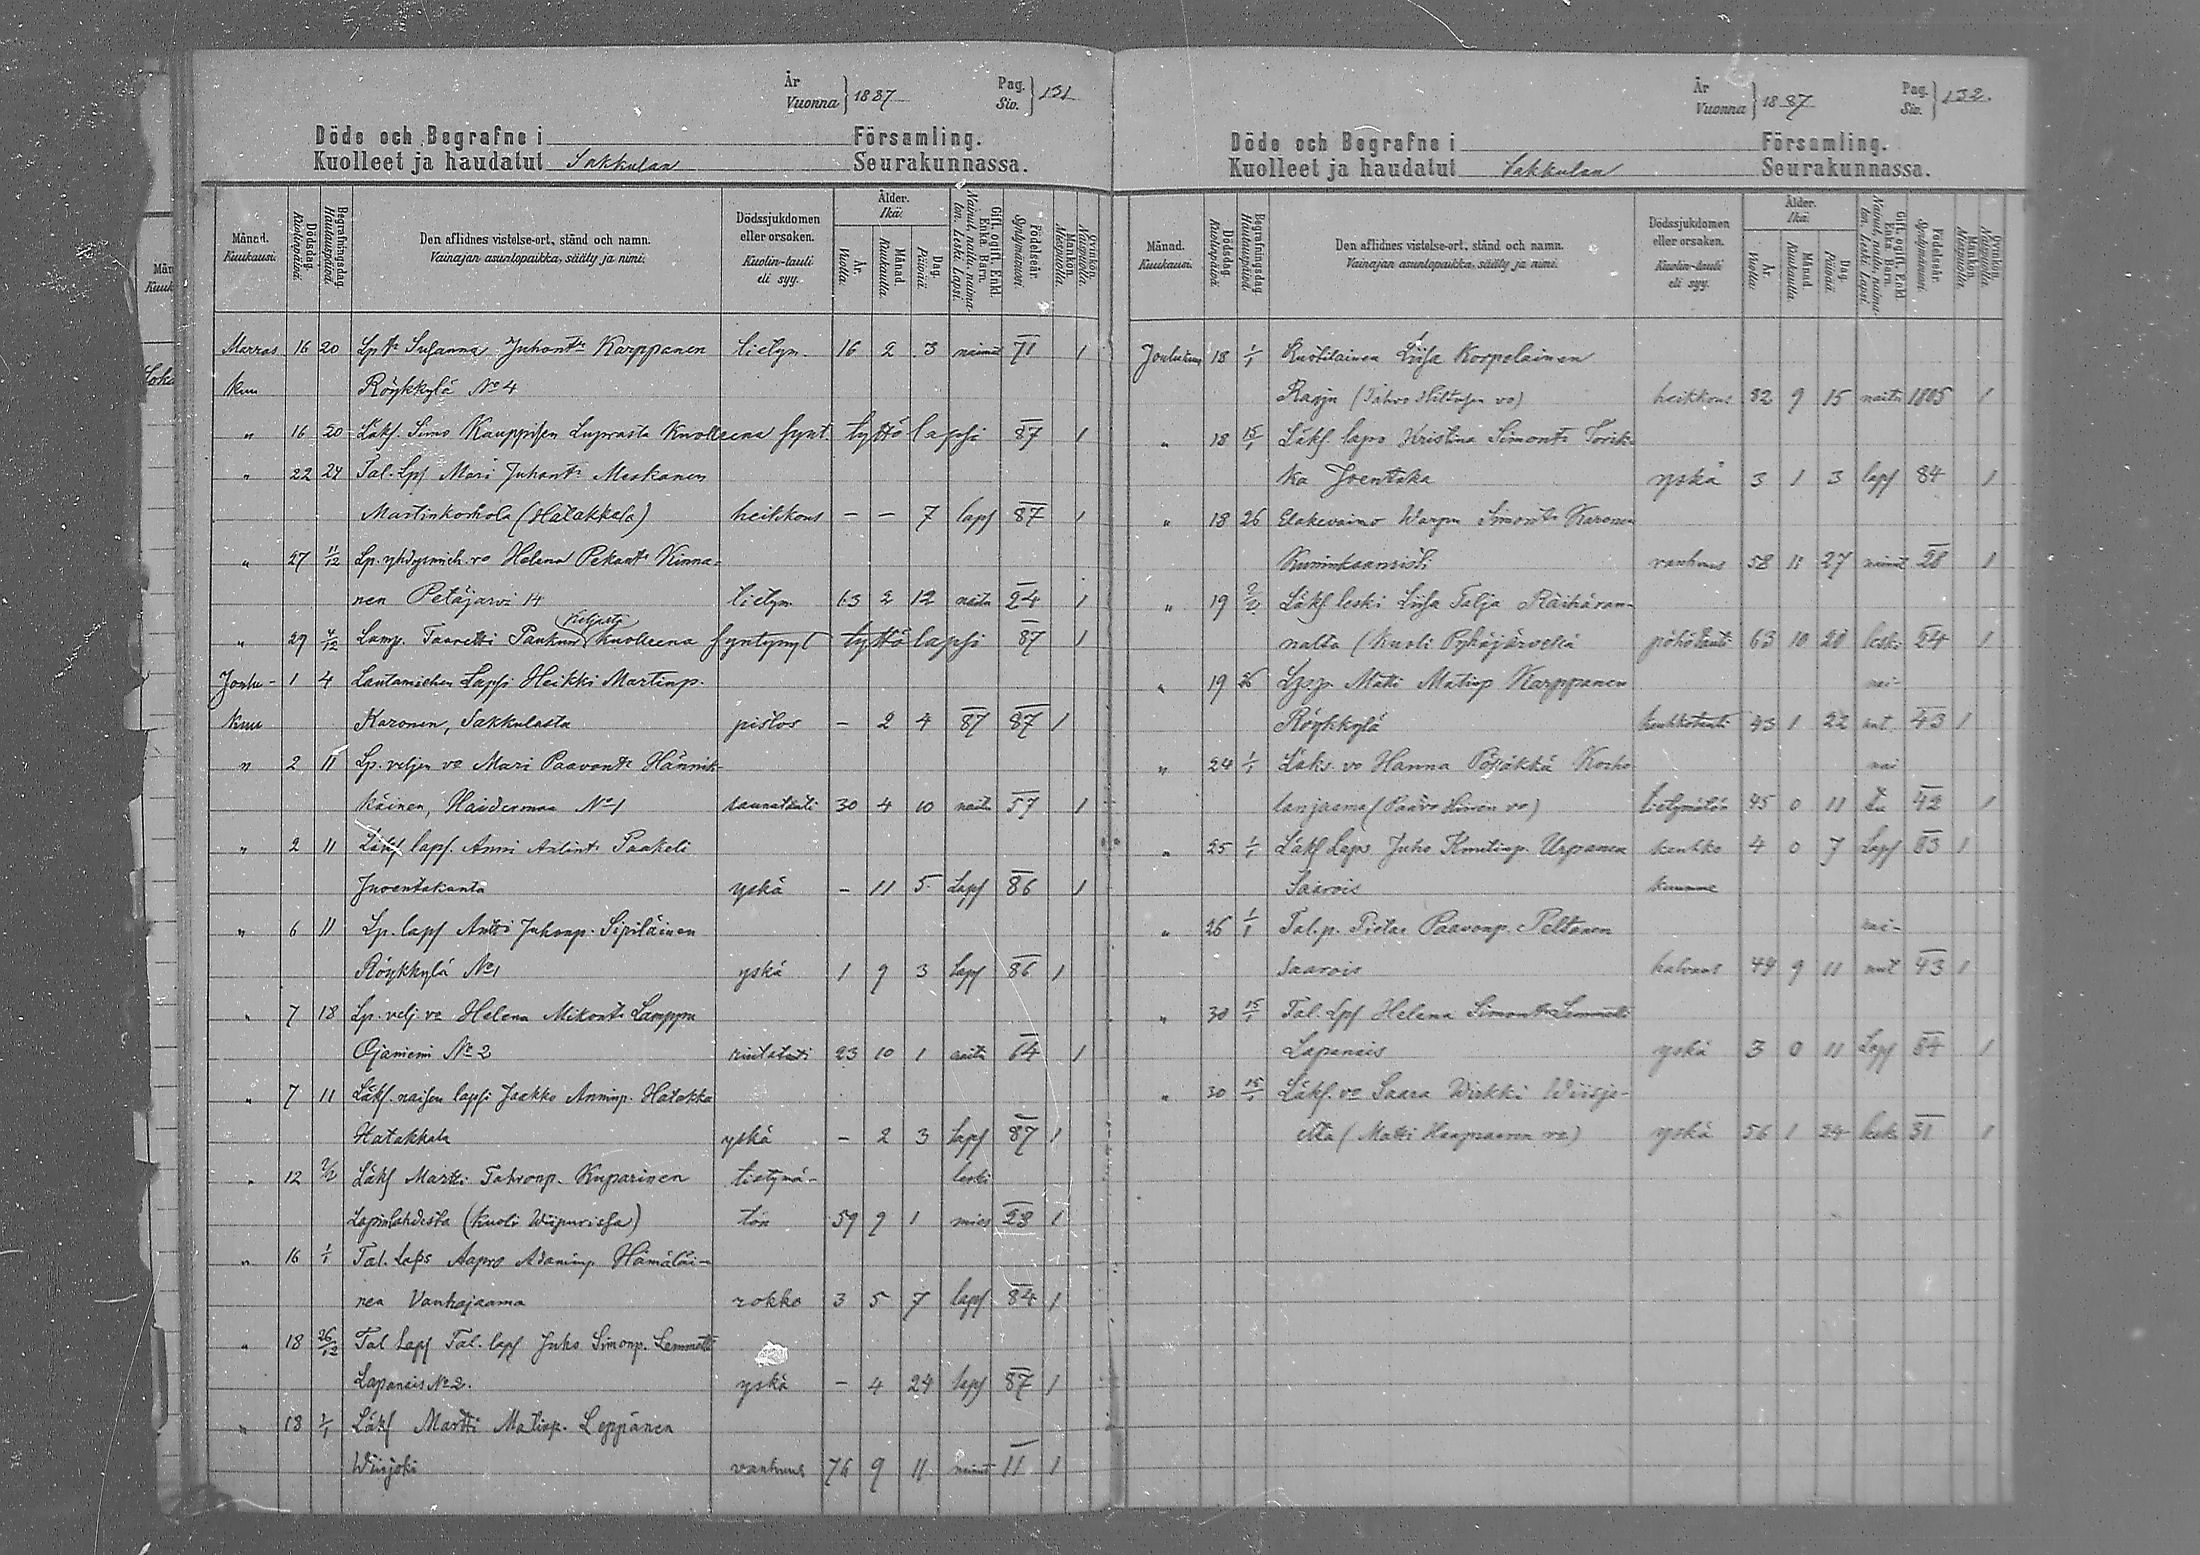 År
Vuonna } 1887
Pag.
Siv. } 131
Döde och Begrafne i Församling.
Kuolleet ja haudatut Sakkulan Seurakunnassa.
Månad. Kuukausi. Dödsdag. Kuolinpäivä. Begrafningsdag. Hautauspäivä. Den aflidnes vistelse-ort, stånd och namn. Vainajan asuntopaikka, sääty ja nimi. Dödssjukdomen eller orsaken. Kuolin-tauti eli syy. Ålder. Ikä. År. Vuotta. Månad. Kuukautta. Dag. Päivää. Gift, ogift, Enkl. Enka. Barn. Nainut, naitu, naimaton. Leski. Lapsi. Födelseår. Syntymävuosi. Mankön. Miespuolia. Qvinkön. Naispuolia.
Marras 16 20 Lp tr Susanna Juhontr Karppanen tietym. 16 2 3 naimat 71 1
kuu Röykkylä No 4
" 16 20 Läks. Simo Kauppisen Luprasta Kuolleena synt. tyttö lapsi 87 1
" 22 27 Tal. Lps Mari Juhontr Moskanen
Martinkorhola (Hatakkala) heikkous - - 7 laps 87 1
" 27 11/12 Lp. yhdysmieh. vo Helena Pekantr Kinna=
nen Petäjärvi 14 tietym 63 2 12 naitu 24 1
" 29 4/12 Lamp. Taavetti Paukun Kuolleena syntynyt tyttö lapsi 87 1
Joulu- 1 4 Lautamiehen Lapsi Heikki Martinp.
kuu Karonen, Sakkulasta pistos - 2 4 87 87 1
" 2 11 Lp. veljen vo Mari Paavontr Hännik-
käinen, Haiderma No 1 30 4 10 naitu 57 1
" 2 11 Läks laps. Anni Paakeli
yskä - 11 5 Laps 86 1
" 6 11 Lp. laps Antti Juhonp. Sipiläinen
Röykkylä No 1 yskä 1 9 3 Laps 86 1
" 7 18 Lp. velj vo Helena Mikontr Lamppu
Ojaniemi No 2 rintatauti 23 10 1 naitu 64 1
" 7 11 Läks. naisen lapsi Jaakko Anninp. Hatakka
Hatakkala yskä - 2 3 laps 87 1
" 12 Läks Martti Tahvonp. Kuparinen tietymä- leski
Lapinlahdesta (Kuoli Wiipurissa) tön 59 9 1 mies 28 1
" 16 1/1 Tal. Laps Aapro Adaminp. Hämäläi-
nen Vanhajaama rokko 3 5 7 laps 84 1
" 18 26/12 Tal Laps Tal. laps Juho Simonp. Lemmetti
Lapanais No 2. yskä - 4 24 laps 87 1
" 18 1/1 Läks Martti Matinp. Leppänen
Wiisjoki vanhuus 76 9 11 nainut 11 1
År
Vuonna } 1887
Pag.
Siv. } 132.
Döde och Begrafne i Församling.
Kuolleet ja haudatut Sakkulan Seurakunnassa.
Månad. Kuukausi. Dödsdag. Kuolinpäivä. Begrafningsdag. Hautauspäivä. Den aflidnes vistelse-ort, stånd och namn. Vainajan asuntopaikka, sääty ja nimi. Dödssjukdomen eller orsaken. Kuolin-tauti eli syy. Ålder. Ikä. År. Vuotta. Månad. Kuukautta. Dag. Päivää. Gift, ogift, Enkl. Enka. Barn. Nainut, naitu, naimaton. Leski. Lapsi. Födelseår. Syntymävuosi. Mankön. Miespuolia. Qvinkön. Naispuolia.
Joulukuu 18 1/1 Ruotilainen Liisa Korpelainen
(Tahvo Hiltusen vo) heikkous 82 9 15 naitu 1805 1
" 18 15/1 Läks. laps Kristina Simontr Torik-
ka Joentaka yskä 3 1 3 laps 84 1
" 18 26 Elakevaimo Warpu Simontr Karonen
Kuninkaanristi vanhuus 58 11 27 nainut 28 1
" 19 Läks leski Liisa Talja Räihäran-
nalta (Kuoli Pyhäjärvellä pöhötauti 63 10 20 leski 24 1
" 19 26 Matti Matinp Karppanen nai-
Röykkylä keuhkotauti 43 1 22 nut. 43 1
" 24 1/1 Läks. vo Hanna Pösökkä Korho nai
lanjaama (Paavo Hinon vo) tietymätön 45 0 11 tu 42 1
" 25 1/1 Läks Laps Juho Knutinp. Urpanen keuhko 4 0 7 Laps 83 1
Saarois kuume
" 26 1/1 Tal.p. Pietar Paavonp. Peltonen nai-
Saarois halvaus 44 9 11 nut 43 1
" 30 15/1 Tal. Lps Helena Simontr Lemmetti
Lapanais yskä 3 0 11 Laps 84 1
" 30 15/1 Läks. vo Saara Wirkki Wiisjo-
elta (Matti Haapsaaren vo) yskä 56 1 24 leski 31 1